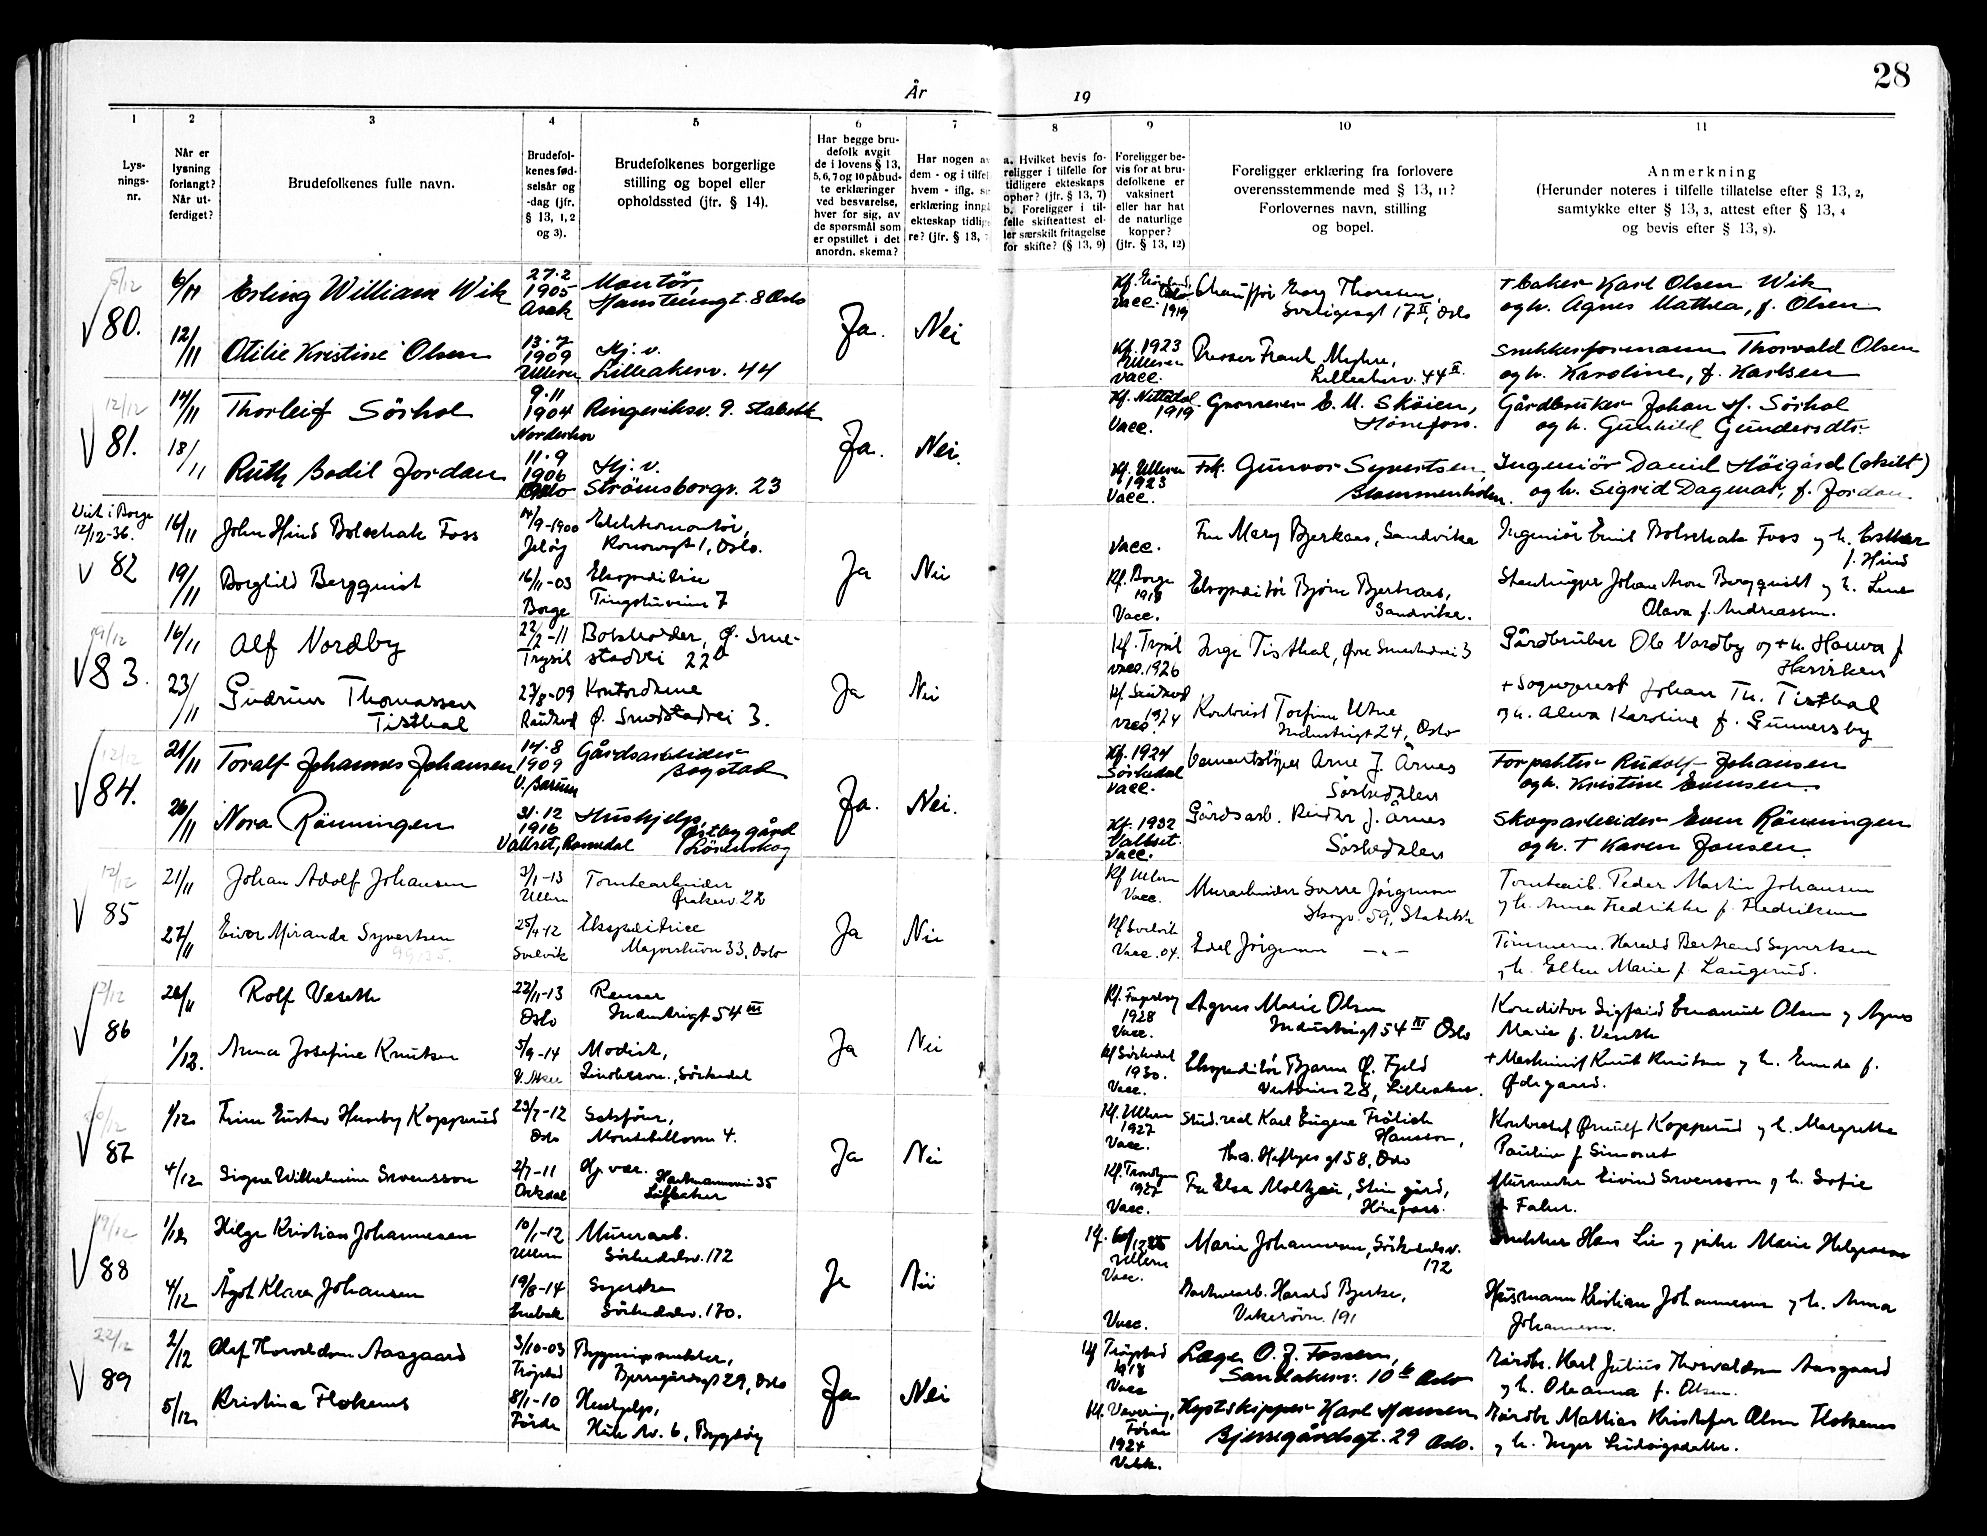 28
År
19
1
2
3
4
5
6
7
8
9
10
11
Lys-
nings-
nr.
Når er
lysning
forlangt?
Når ut-
ferdiget?
Brudefolkenes fulle navn.
Brudefol-
kenes fød-
selsår og
-dag (jfr.
§ 13, 1, 2
og 3).
Brudefolkenes borgerlige
stilling og bopel eller
opholdssted (jfr. § 14).
Har begge bru-
defolk avgit
de i lovens § 13,
5, 6, 7 og 10 påbud-
te erklæringer
ved besvarelse,
hver for sig, av
de spørsmål som
er opstillet i det
anordn. skema?
Har nogen av
dem - og i tilfel
hvem - iflg.
erklæring inng
ekteskap tidlig
re? (jfr. § 13,
a. Hvilket bevis fo-
religger i tilfelle for
tidligere ekteskaps
ophør? (jfr. § 13, 7)
b. Foreligger i til-
felle skifteattest el-
ler særskilt fritagelse
for skifte? (§ 13, 9)
Foreligger be-
vis for at bru-
defolkene er
vaksinert
eller har hat
de naturlige
kopper?
(jfr. § 13, 12)
Foreligger erklæring fra forlovere
overensstemmende med § 13, 11?
Forlovernes navn, stilling
og bopel.
Anmerkning
(Herunder noteres i tilfelle tillatelse efter § 13, 2,
samtykke efter § 13, 3, attest efter § 13, 4
og bevis efter § 13, 8).
80.
6/11
Erling William Wik
27.2
1905
Asak
Montör,
8 Oslo
Ja.
Nei
Vacc. 1919
Chaufför Thorsen,
17 II, Oslo
+ baker Karl Olsen Wik
og h. Agnes Mathea, f. Olsen
12/11
Otilie Kristine Olsen
13.7
1909
Ullern
Hj. v.
Lilleakerv. 44
Kf. 1923
Ullern
Vacc.
Presser Frank
Lilleakerv. 44 II.
Snekkerformann Thorvald Olsen
og h. Karoline, f. Karlsen
12/12
81.
14/11
Thorleif Sörhol
9.11
1904
Norderhov
Ringeriksv. 9. Stabekk
Ja.
Nei.
Kf. Nittedal
1919
Vacc.
Grosserer E. M. Sköien,
Hönefoss.
Gårdbruker Johan H. Sörhol
og h. Gunhild Gundersdtr.
18/11
Ruth Bodil Jordan
11.9
1906
Oslo
Hj. v.
Strömsborgv. 23
Kf. Ullern
1923
Vacc.
Frk. Gunvor Syvertsen
Blommenholm.
Ingeniör Daniel Höigård (skilt)
og h. Sigrid Dagmar, f. Jordan.
Viet i Borge
12/12-36.
82
16/11
John Hind Bolschak Foss
14/9-1900
Jelöy
Elektromontör,
1, Oslo.
Ja
Nei
Vacc.
Fru Mary Bjerkaas, Sandvika
Ingeniör Emil Bolschak Foss og h. Esther
f. Hind
19/11
Borghild Bergquist
16/11-03
Borge
Ekspeditrise
Tingstuveien 7
Kf. Borge
1918
Vacc.
Ekspeditör Björn Bjerkaas,
Sandvika.
Stenhugger Johan Aron Bergquist og h. Lene
Olava f. Andreassen.
19/12
83.
16/11
Alf Nordby
22/2-11
Trysil
Bokholder, Ø. Sme-
stadvei 22 b
Ja
Nei
Kf. Trysil
vacc. 1926
Inga Tisthal, Øvre Smestadvei 3
Gårdbruker Ole Nordby og + h. Hanna f.
23/11
Gudrun Thomassen
Tisthal
27/8-09
Kontordame
Ø. Smestadvei 3.
1924
Vacc.
Kontorist Torfinn Utne
Industrigt 24, Oslo
+ Sogneprest Johan Th. Tisthal
og h. Alma Karoline f. Gunnersby
12/12
84.
21/11
Toralf Johannes Johansen
14.8
1909
V. Bærum
Gårdsarbeider
Bogstad
Ja.
Nei.
Kf. 1924
Sörkedal
Vacc.
Cementstöper Arne J. Årnes
Sörkedalen
Forpakter Rudolf Johansen
og h. Kristine Evensen.
26/11
Nora Rönningen
31.12
1916
Vallset, Romedal
Hushjelp,
Östby gård
Lörenskog
Kf. 1932
Vallset.
Vacc.
Gårdsarb. Reidar J. Årnes
Sörkedalen
Skogsarbeider Even Rönningen
og h. + Karen Jonsen.
12/12
85
21/11
Johan Adolf Johansen
3/1-13
Ullern
Tomtearbeider
Ørakerv. 22
Ja
Nei
Kf. Ullern
Vacc.
Murarbeider Sverre Jörgensen
Skogv. 59, Stabekk
Tomtearb. Peder Martin Johansen
og h. Anna Fredrikke f. Fredriksen
27/11
Eivor Miranda Syvertsen
25/4-12
Svelvik
Ekspeditrice
Majorstuvn 33, Oslo
Kf. Svelvik
Vacc. 04.
Edel Jörgensen — " —
Tömmerm. Harald Bertrand Syvertsen
og h. Ellen Marie f. Laugerud.
86
26/11
Rolf Veseth
22/11-13
Oslo
Renser
Industrigt 54 III
Ja
Nei
1928
Vacc.
Agnes Marie Olsen
Industrigt 54 III Oslo
Konditor Sigfrid Emanuel Olsen og Agnes
Marie f. Veseth
1/12.
Anna Josefine Knutsen
5/9-14
V. Aker
Modist,
Sörkedal
Kf. Sörkedal
1930.
Vacc.
Ekspeditör Bjarne Ø. Fjeld
28, Lilleaker.
+ Maskinist Knut Knutsen og h. Emma f.
Ødegaard.
87
1/12
Finn Gustav Huseby Kopperud
23/7-12
Oslo
Salsförer,
Montebelloveien 4.
Ja
Nei
Kf. Ullern
1927
Vacc.
Stud. real Karl Eugene Frölich
Hansson,
Ths. Heftyes gt 58, Oslo
Kontorchef Ørnulf Kopperud og h. Margrethe
Pauline f. Simonsen
4/12
Signe Wilhelmine Svensson
2/7-11
Orkdal
Hj. vær.
35
Lilleaker
1927
Vacc.
Fru Elsa Moltzau, Stein gård,
Hönefoss.
Murmester Eivind Svensson og h. Sofie
f. Faber.
19/12
88
1/12
Helge Kristian Johannesen
10/1-12
Ullern
Murerarb.
Sörkedalsv. 172
Ja
Nei
Kf.
Ullern
Vacc.
Marie Johannesen, Sörkedalsv.
172
Snekker Hans Lie og pike Marie Helgesen
4/12
Ågot Klara Johansen
19/8-14
Enebak
Syerske
Sörkedalsv. 170.
Vacc.
Harald Bjerke,
191
Husmann Kristian Johannesen og h. Anna
Johannesen.
22/12
89
2/12
Olaf Thorvaldsen Aasgaard
3/10-03
Trögstad
Bygningssnekker,
Bjerregårdsgt 29, Oslo
Ja
Nei
Kf Trögstad
1918
Vacc
Læge O. J. Fossen,
Sandakerv. 10 b Oslo
Gårdbr. Karl Julius Thorvaldsen Aasgaard
og h. Oleanna f. Olsen.
5/12
Kristina Flokenes
8/1-10
Förde
Hushjelp,
Huk Av. 6, Bygdöy
Kf. Vevring,
Förde
1924
Vakk.
Hystskipper Karl Hansen
Bjerregårdsgt. 29 Oslo.
Gårdbr. Mathias Kristofer Olsen Flokenes
og h. Inger Ludvigsdatter.